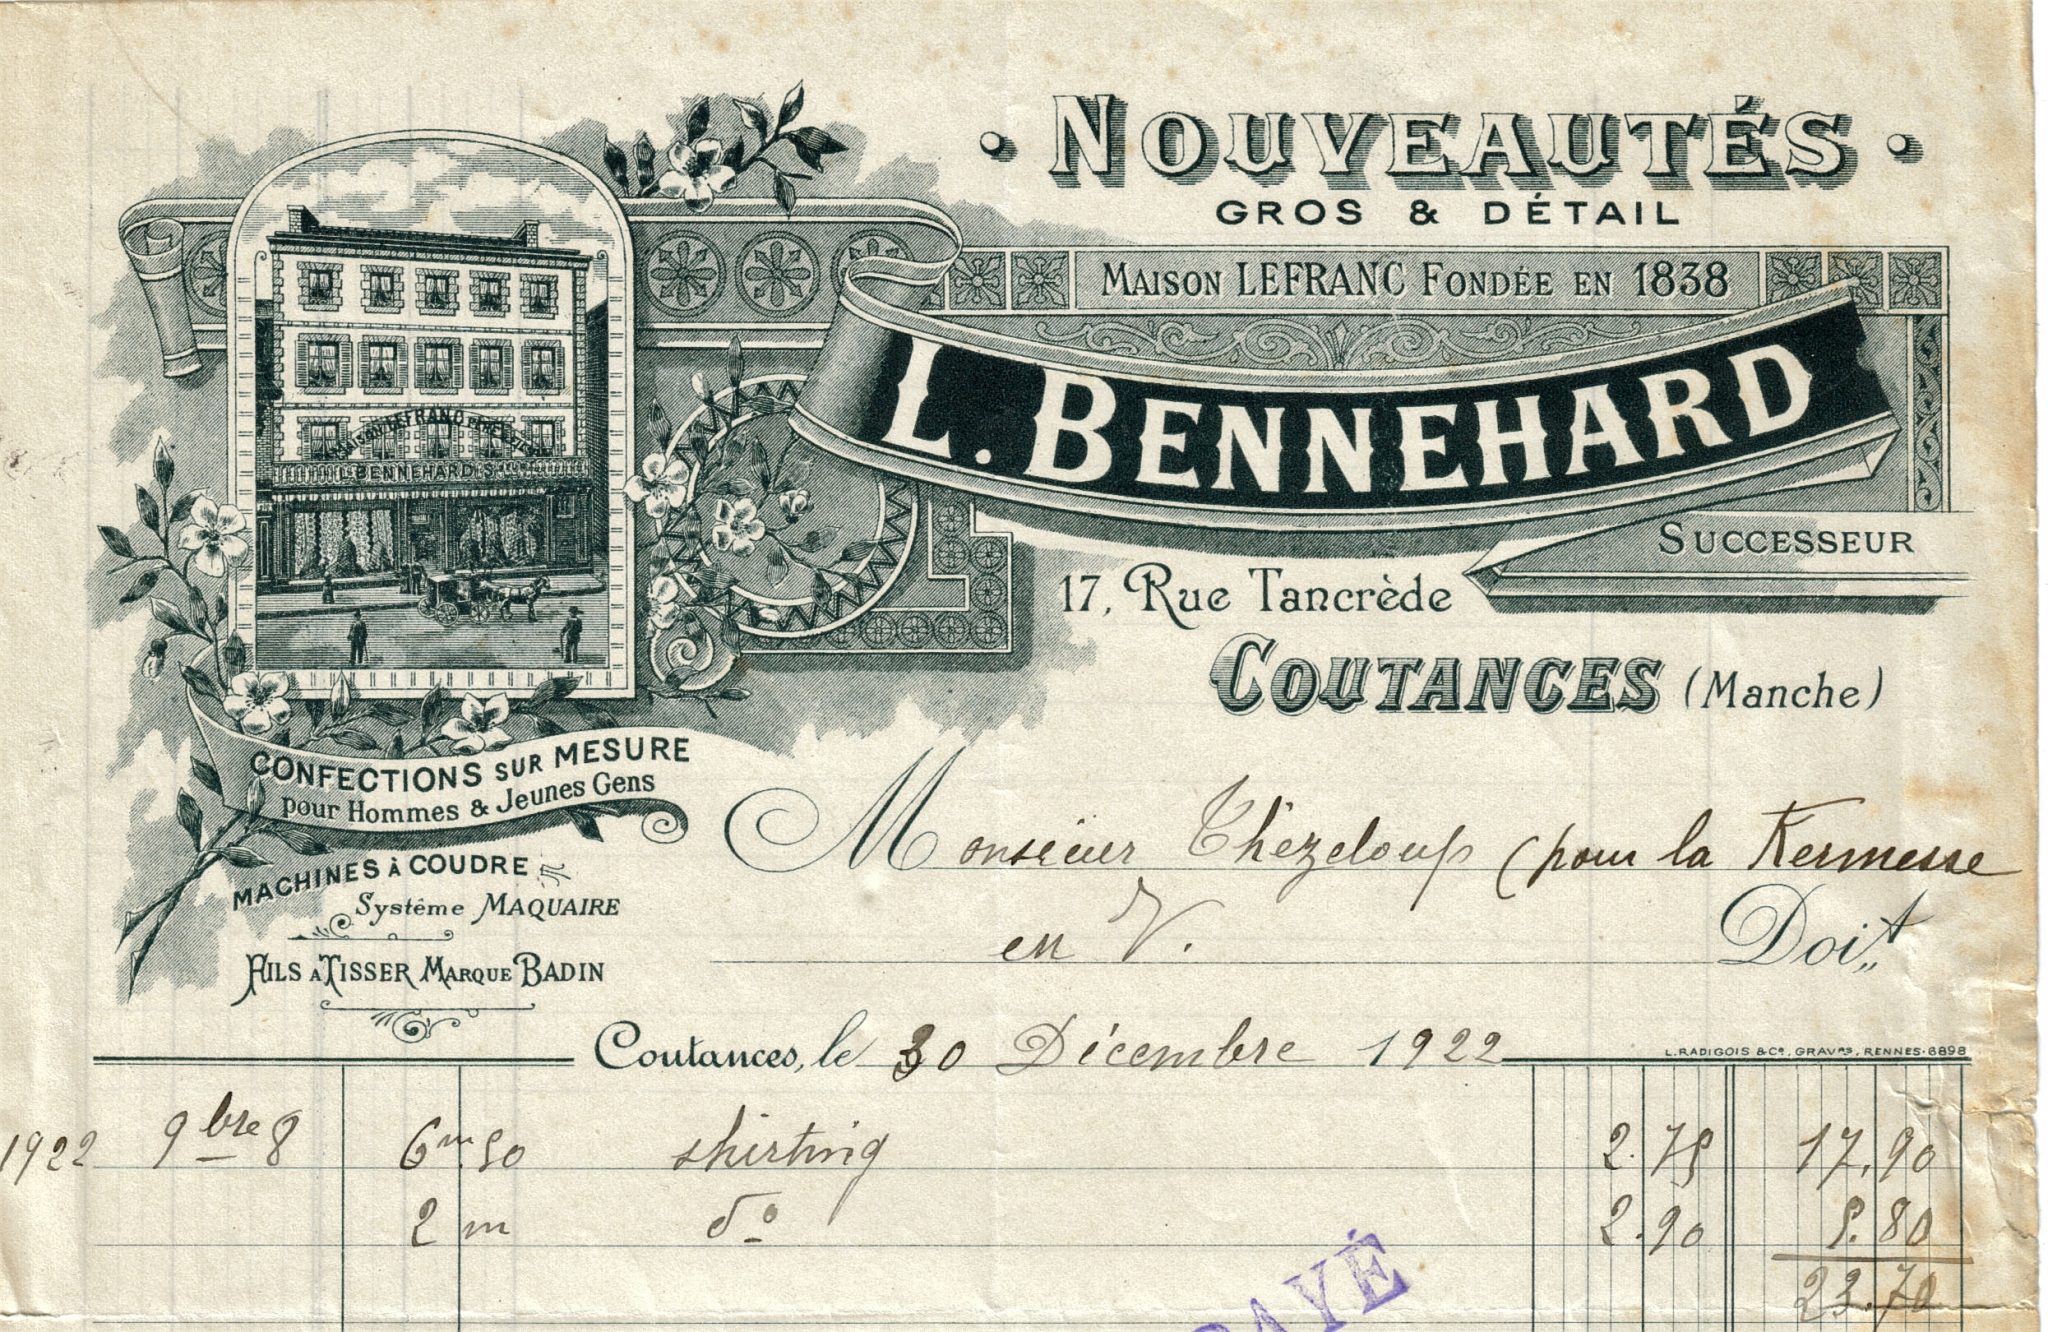 NOUVEAUTÉS
GROS & DÉTAIL
MAISON LEFRANC FONDÉE EN 1838
L. BENNEHARD
SUCCESSEUR
17, Rue Tancrède
COUTANCES (Manche)
L. BENNEHARD S
CONFECTIONS SUR MESURE
pour Hommes & Jeunes Gens
MACHINES À COUDRE
Système MAQUAIRE
FILS A TISSER MARQUE BADIN
Monsieur Thézeloup (pour la Kermesse
en V. Doit
Coutances, le 30 Décembre 1922
L. RADIGOIS & Cº, GRAVRS, RENNES-6898
1922 9bre 8 6m.50 shirting 2.75 17,90
2 m dº 2.90 5.80
23.70
PAYÉ